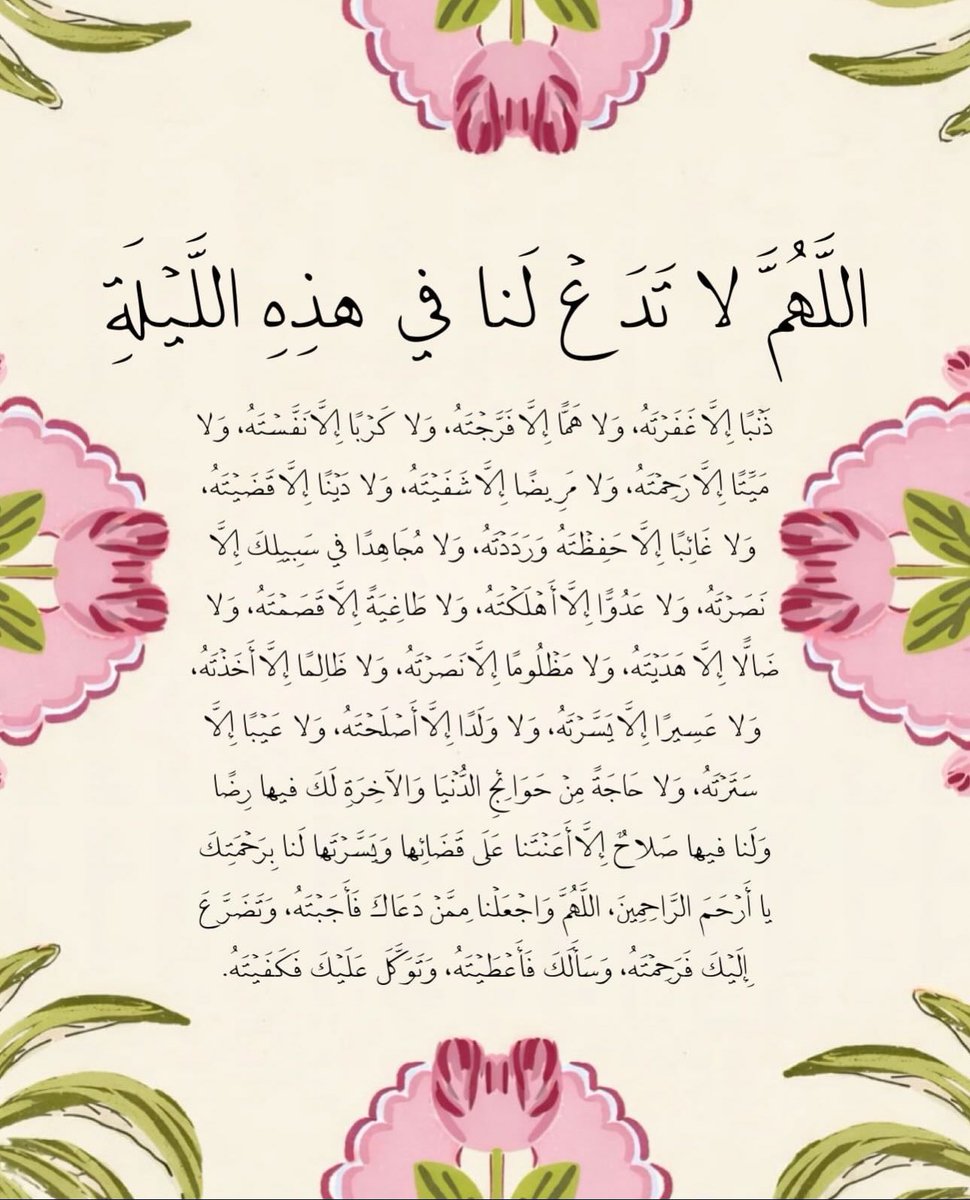 اللَّهُمَّ لا تَدَعْ لَنا في هذِهِ اللَّيْلَةِ
ذَنْبًا إِلَّا غَفَرْتَهُ، وَلا هَمًّا إِلَّا فَرَّجْتَهُ، وَلا كَرْبًا إِلَّا نَفَّسْتَهُ، وَلا
مَيِّتًا إِلَّا رَحِمْتَهُ، وَلا مَرِيضًا إِلَّا شَفَيْتَهُ، وَلا دَيْنًا إِلَّا قَضَيْتَهُ،
وَلا غَائِبًا إِلَّا حَفِظْتَهُ وَرَدَدْتَهُ، وَلا مُجَاهِدًا فِي سَبِيلِكَ إِلَّا
نَصَرْتَهُ، وَلا عَدُوًّا إِلَّا أَهْلَكْتَهُ، وَلا طَاغِيَةً إِلَّا قَصَمْتَهُ، وَلا
ضَالًّا إِلَّا هَدَيْتَهُ، وَلا مَظْلُومًا إِلَّا نَصَرْتَهُ، وَلا ظَالِمًا إِلَّا أَخَذْتَهُ،
وَلا عَسِيرًا إِلَّا يَسَّرْتَهُ، وَلا وَلَدًا إِلَّا أَصْلَحْتَهُ، وَلا عَيْبًا إِلَّا
سَتَرْتَهُ، وَلا حَاجَةً مِنْ حَوَائِجِ الدُّنْيَا وَالآخِرَةِ لَكَ فيها رِضًا
وَلَنا فيها صَلاحٌ إِلَّا أَعَنْتَنا عَلَى قَضَائِها وَيَسَّرْتَها لَنا بِرَحْمَتِكَ
يا أَرْحَمَ الرَّاحِمِينَ، اللَّهُمَّ وَاجْعَلْنا مِمَّنْ دَعَاكَ فَأَجَبْتَهُ، وَتَضَرَّعَ
إِلَيْكَ فَرَحِمْتَهُ، وَسَأَلَكَ فَأَعْطَيْتَهُ، وَتَوَكَّلَ عَلَيْكَ فَكَفَيْتَهُ.